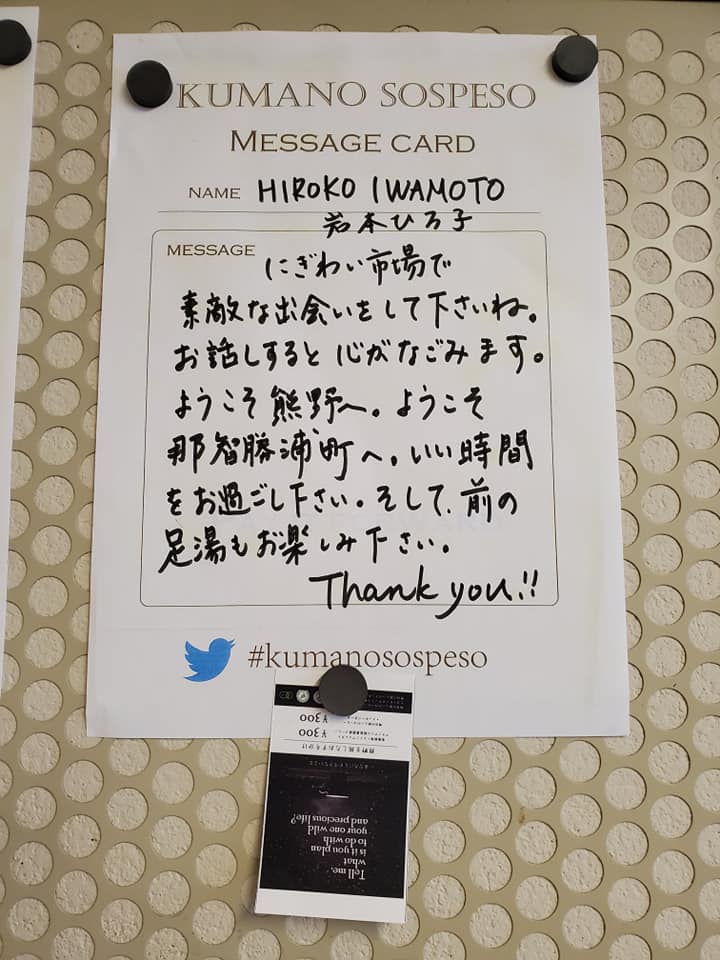 KUMANO SOSPESO
MESSAGE CARD
NAME HIROKO IWAMOTO
岩本ひろ子
MESSAGE
にぎわい市場で
素敵な出会いをして下さいね。
お話しすると心がなごみます。
ようこそ熊野へ。ようこそ
那智勝浦町へ。いい時間
をお過ごし下さい。そして、前の
足湯もお楽しみ下さい。
Thank you!!
#kumanosospeso
Tell me,
what
is it you plan
to do with
your one wild
and precious life?
熊野を旅したおすそ分け
¥300
¥300